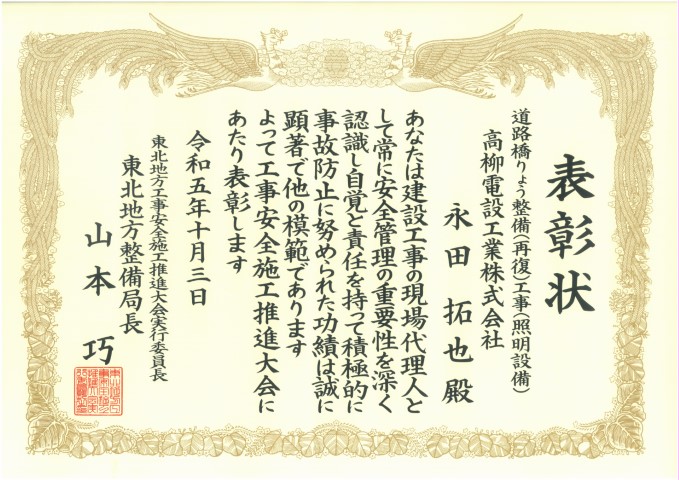 表彰状
道路橋りょう整備(再復)工事(照明設備)
高柳電設工業株式会社
永田拓也殿
あなたは建設工事の現場代理人と
して常に安全管理の重要性を深く
認識し自覚と責任を持って積極的に
事故防止に努められた功績は誠に
顕著で他の模範であります
よって工事安全施工推進大会に
あたり表彰します
令和五年十月三日
東北地方工事安全施工推進大会実行委員長
東北地方整備局長
山本巧